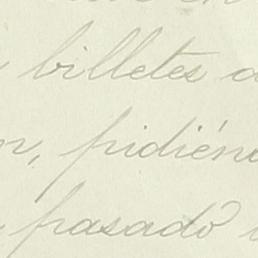 billetes
pidién
pasado